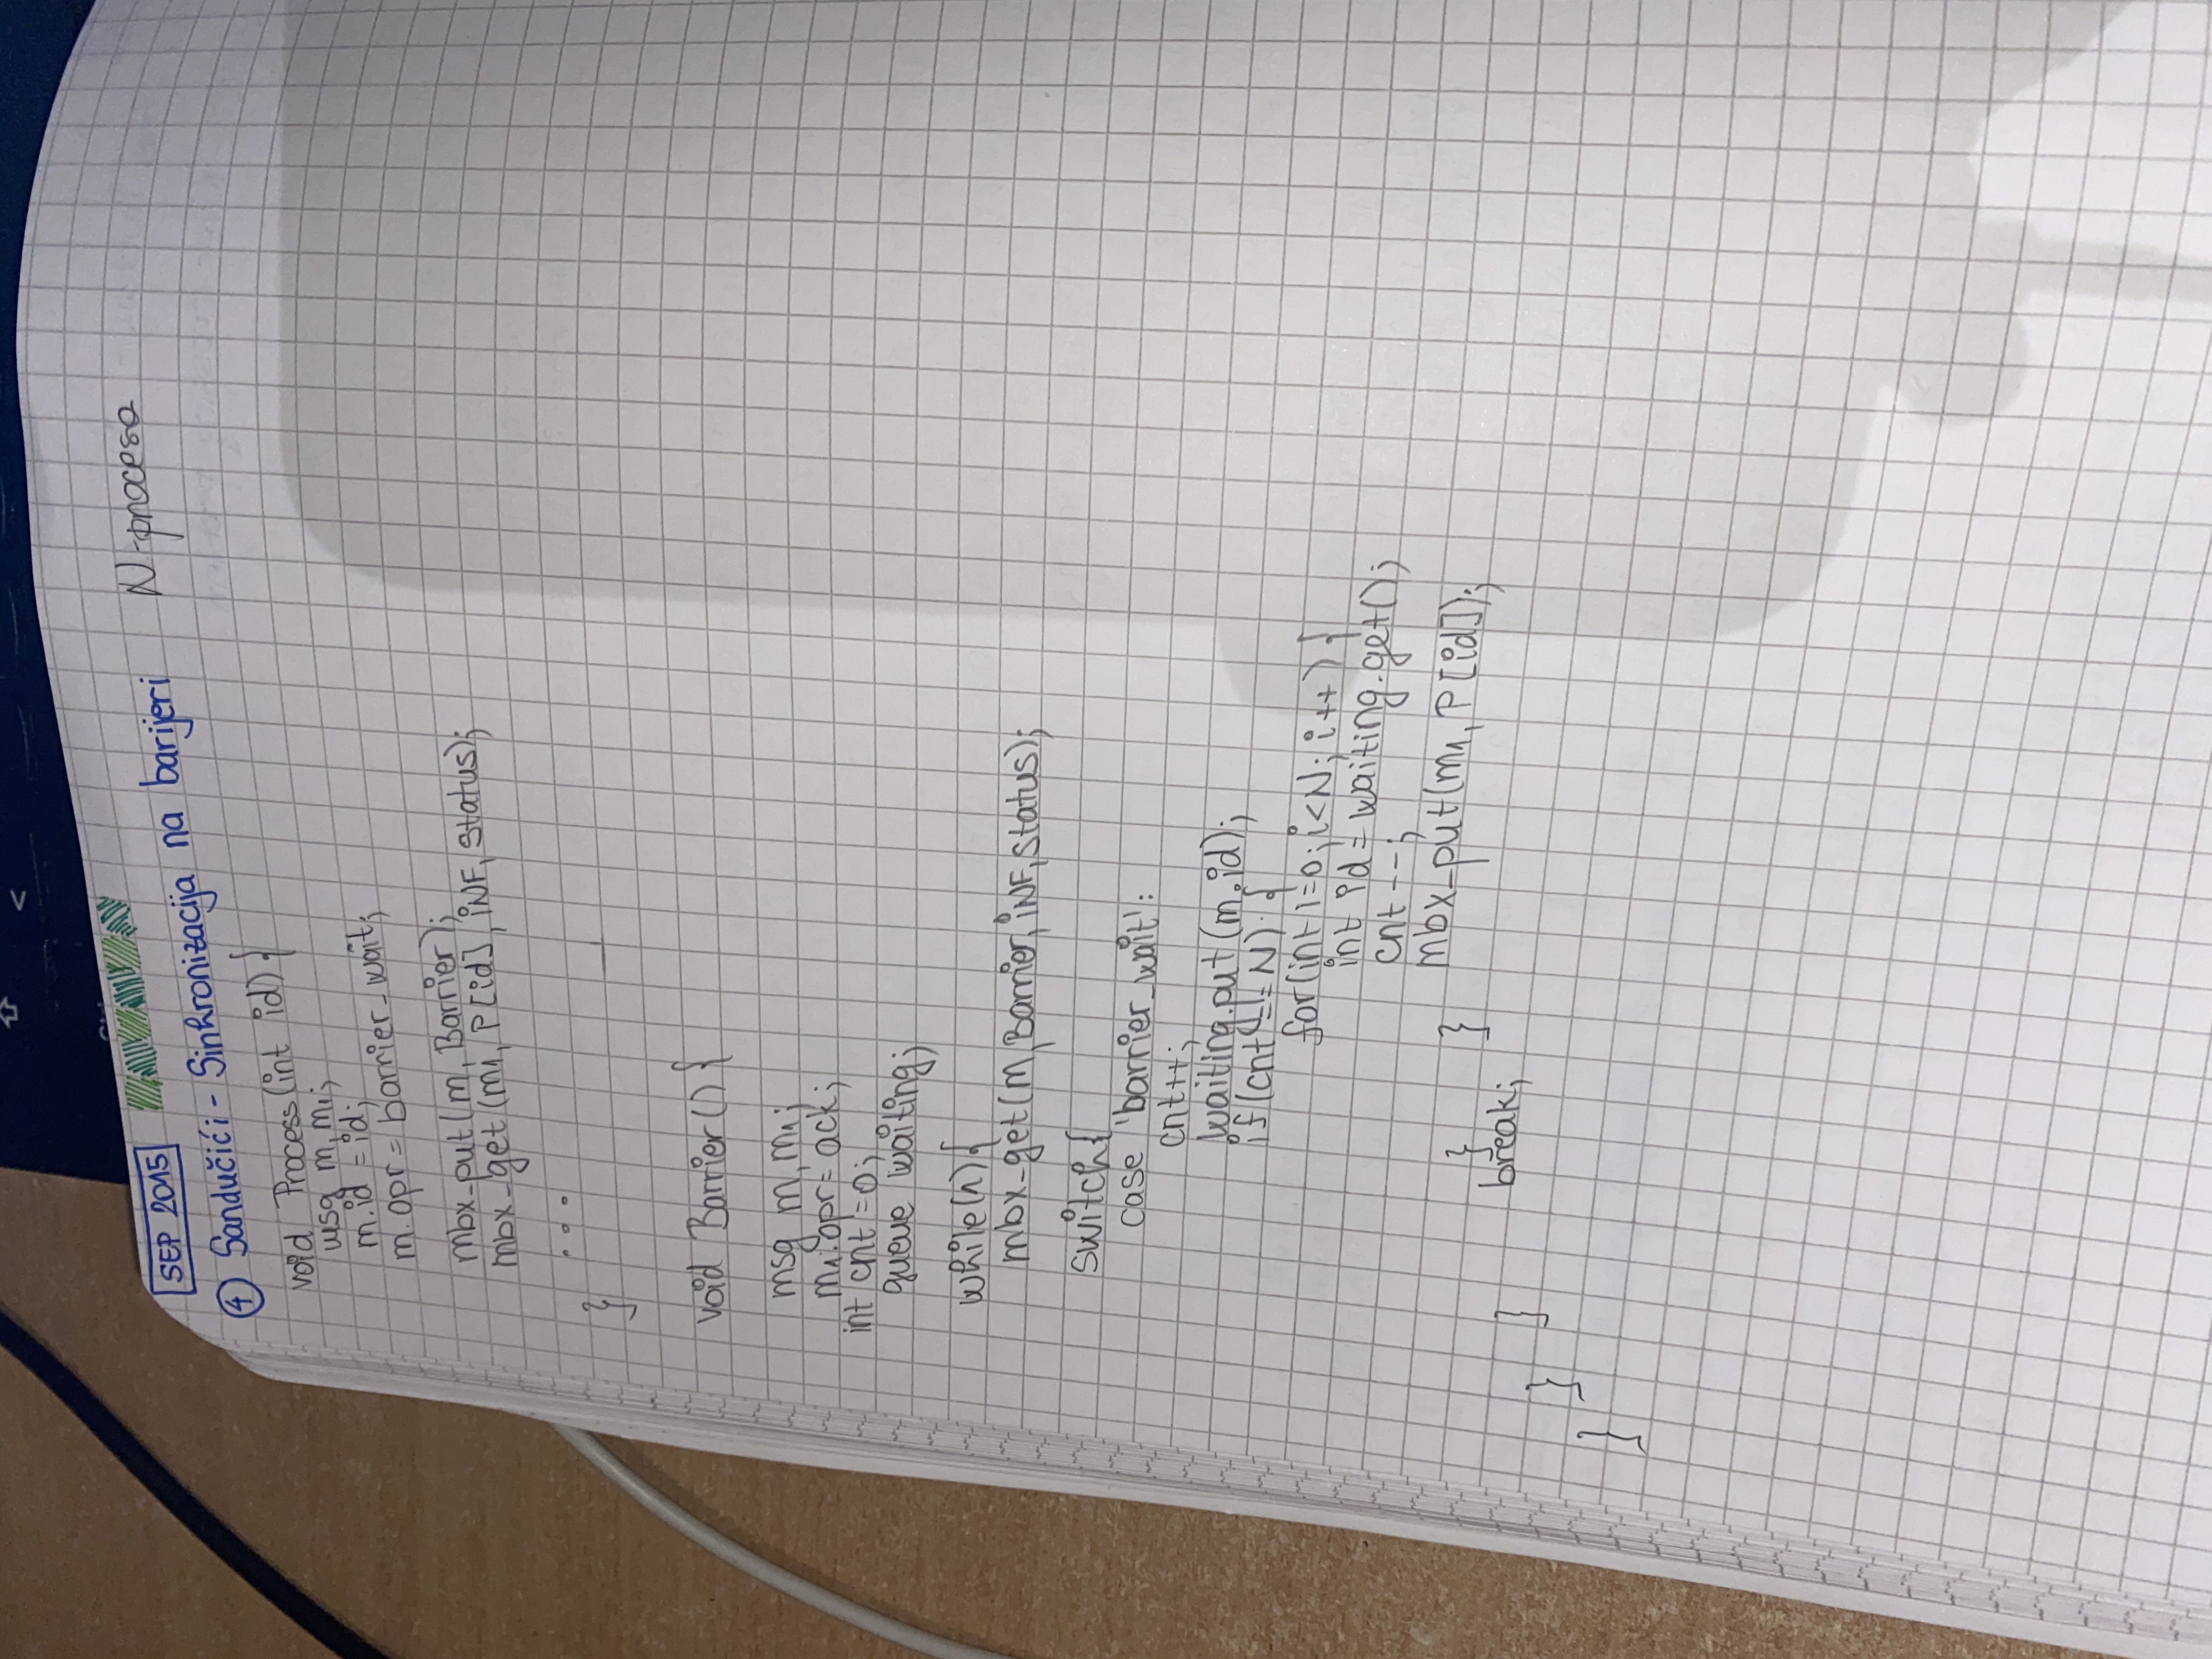 SEP 2015
④ Sandučići - Sinhronizacija na barijeri N-procesa
void Process(int id){
msg m, m1;
m.id = id;
m.opr = barrier_wait;
mbx_put(m, Barrier);
mbx_get(m1, P[id], iNF, status);
...
}
void Barrier(){
msg m, m1;
m1.opr = ack;
int cnt = 0;
queue waiting;
while(1){
mbx_get(m, Barrier, iNF, status);
switch{
case 'barrier_wait':
cnt++;
waiting.put(m.id);
if(cnt == N) {
for(int i=0; i<N; i++) {
int id = waiting.get();
cnt--;
mbx_put(m1, P[id]);
} }
break;
}
}
}